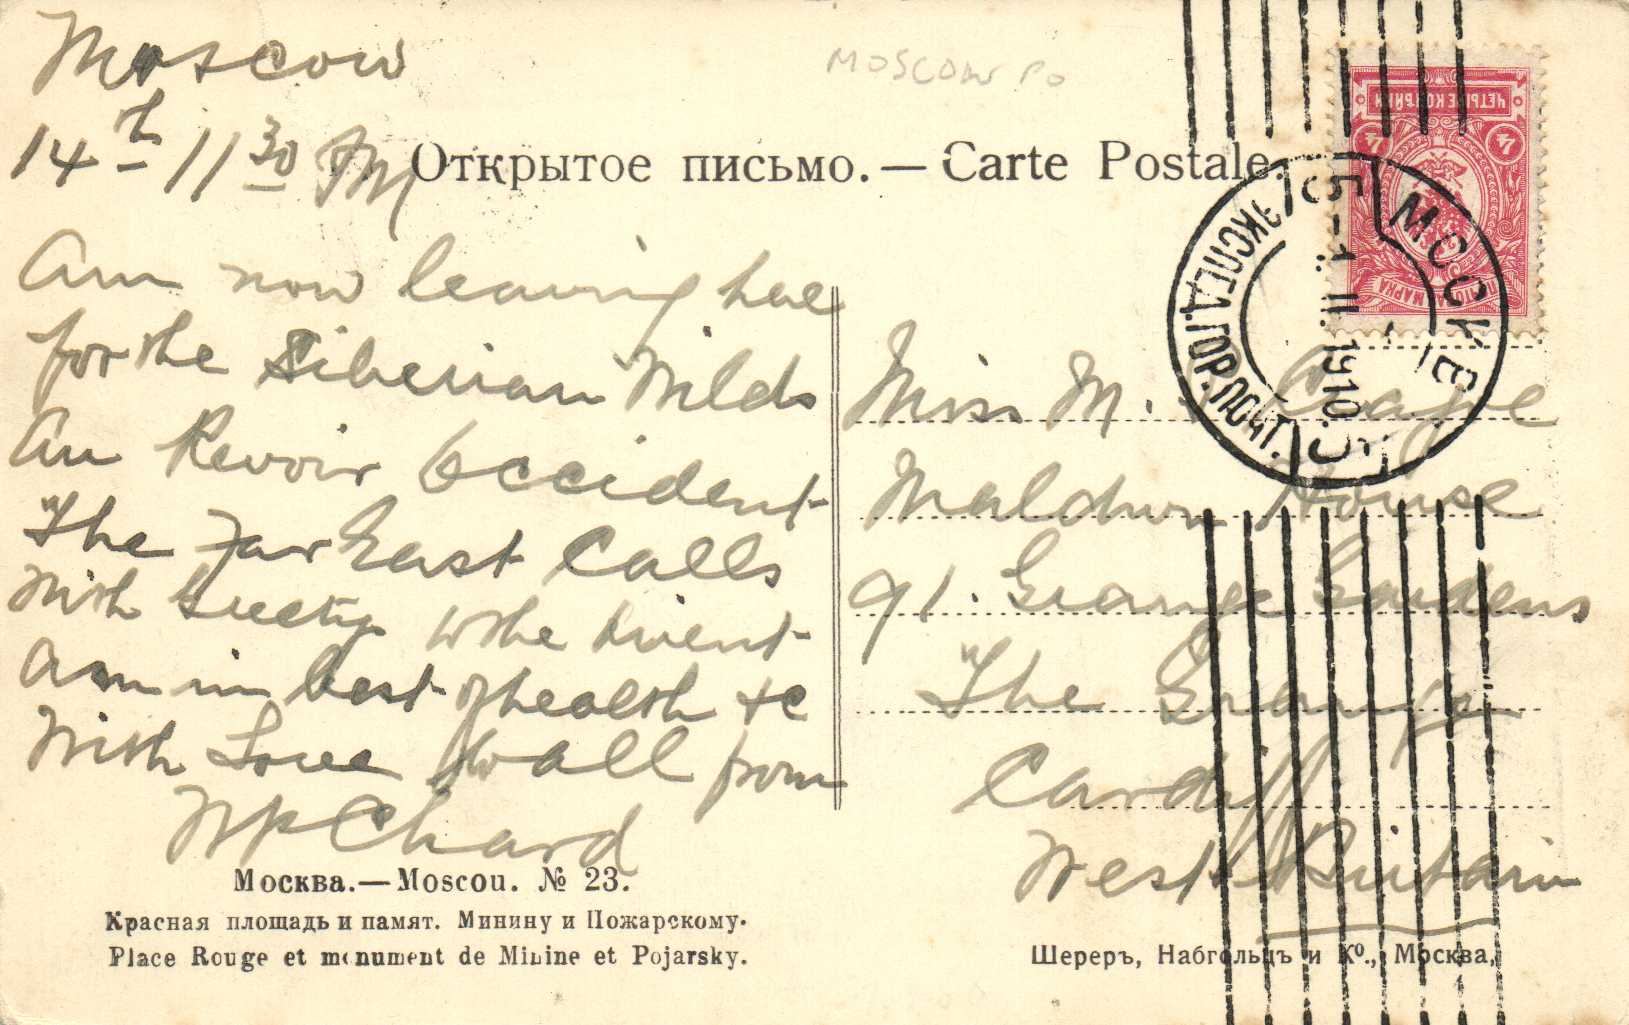 Moscow
14th 11 30 PM
MOSCOW PO
Открытое письмо. — Carte Postale.
Am now leaving here
for the Siberian Wilds
Au Revoir Occident
"The Far East Calls
With
to the
Am in best of health &c
With Love to all from
WP Chard
Miss M.
House
91. Grange Gardens
"The Grange
Cardiff
West Britain
ЧЕТЫРЕ КОПѢЙКИ
4 4
ПОЧТОВАЯ МАРКА
МОСКВА
5-1. II. 1910. 5
ЭКСПЕД. ГОР. ПОЧТ.
Москва.—Moscou. № 23.
Красная площадь и памят. Минину и Пожарскому.
Place Rouge et monument de Minine et Pojarsky.
Шереръ, Набгольцъ и Ко., Москва.